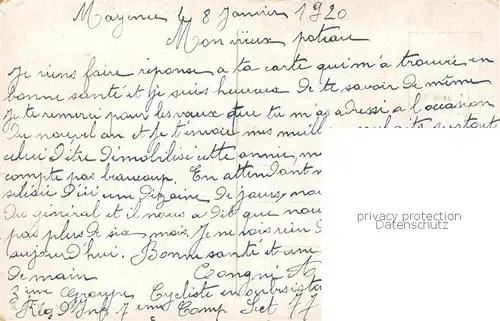 Mayence le 8 Janvier 1920
Mon vieux poteau
Je viens faire réponse a ta carte qui m'a trouvé en
bonne santé et je suis heureux de te savoir de même
je te remerci pour les vœux que tu m'as adressi a l'occasion
Du nouvel an et Je t'envoie mes souhaits surtout
celui d'être démobilisé cette année,
compte pas beaucoup. En attendant
D'ici une dizaine de jours,
Du général et il nous a dit que
pas plus de six mois. Je ne vois rien
aujourd'hui. Bonne santé et une
de main
3ème Groupe Cycliste en
Rég D'Inf 7 eme Comp Sect 77
privacy protection
www.delcampe.net